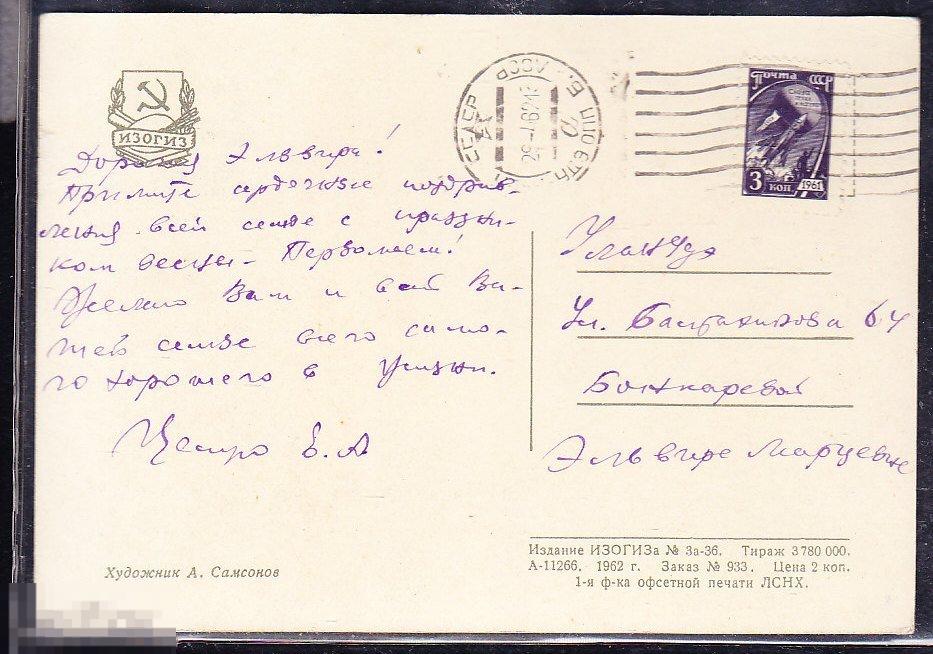 ИЗОГИЗ
Дорогая Эльвира!
Примите сердечные поздрав-
ления всей семье с праздни-
ком весны - Первомаем!
Желаю Вам и всей Ва-
шей семье всего само-
го хорошего в жизни.
Е. А
Художник А. Самсонов
СССР
29-4 62 12
Почта СССР
3 коп 1961
Улан Удэ
Ул. Балтахинова 64
Бочкаревой
Эльвире Марцевне
Издание ИЗОГИЗа № 3а-36. Тираж 3 780 000.
А-11266. 1962 г. Заказ № 933. Цена 2 коп.
1-я ф-ка офсетной печати ЛСНХ.